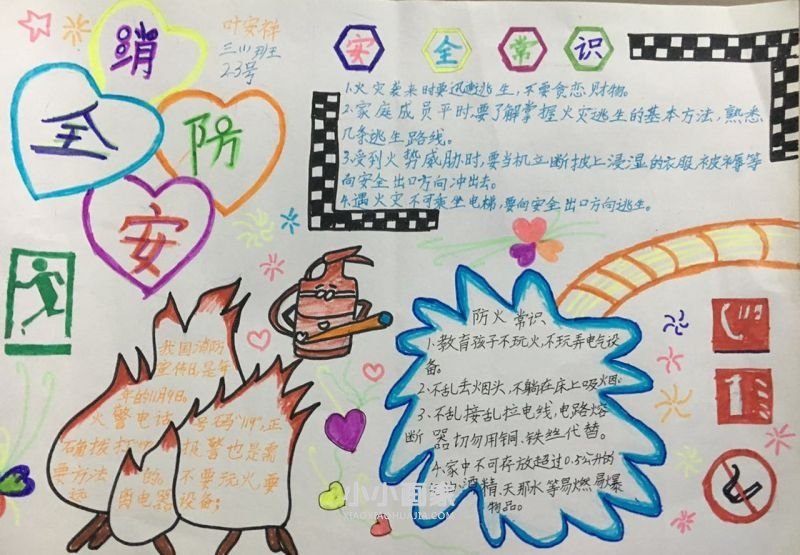 消
全
防
安
叶安祥
三(1)班
23号
安全常识
1.火灾袭来时要迅速逃生,不要贪恋财物。
2.家庭成员平时要了解掌握火灾逃生的基本方法,熟悉
几条逃生路线。
3.受到火势威胁时,要当机立断披上浸湿的衣服、被褥等
向安全出口方向冲出去。
4.遇火灾不可乘坐电梯,要向安全出口方向逃生。
防火常识
1.教育孩子不玩火,不玩弄电气设
备。
2.不乱丢烟头,不躺在床上吸烟。
3、不乱接乱拉电线,电路熔
断器切勿用铜、铁丝代替。
4.家中不可存放超过0.5公升的
酒精、天那水等易燃易爆
物品。
我国消防
宣传日是每
年的11月9日。
火警电话号码"119",正
确拨打 报警也是需
要方法的。不要玩火要
远离电器设备;
小小画家
XIAOXIAOHUAJIA.COM